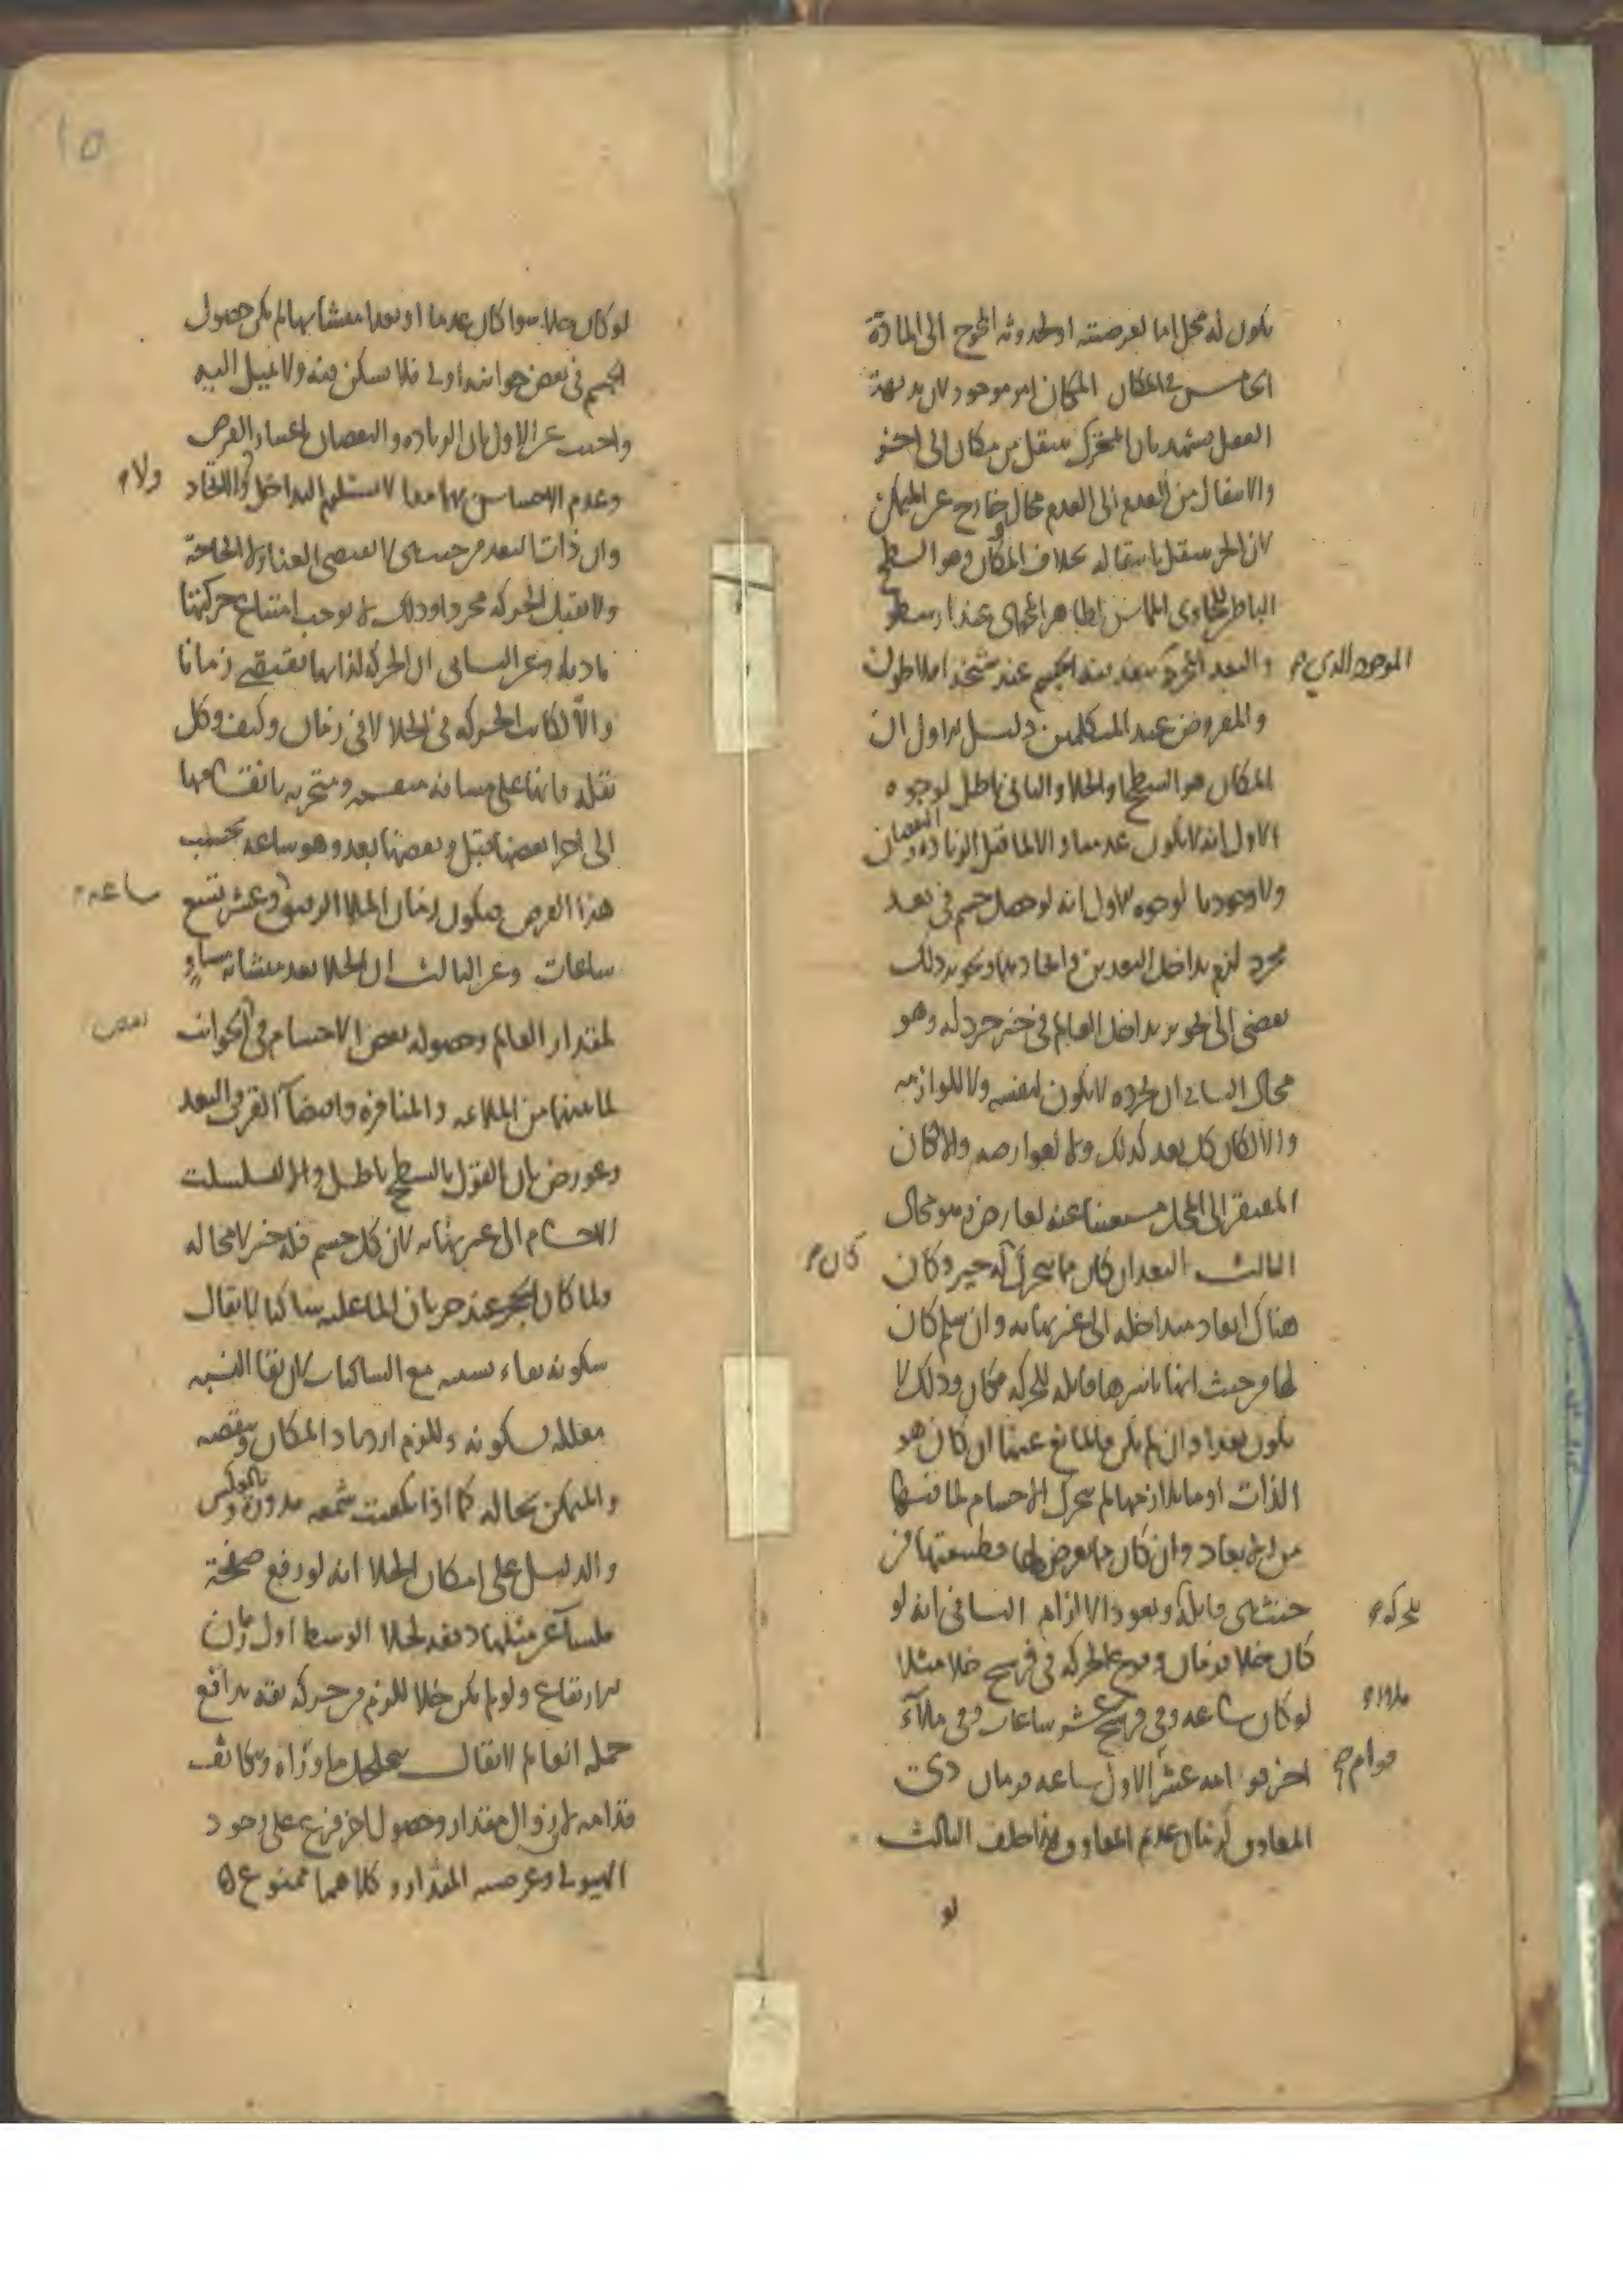 يكون له محل اما لعرضيته او لحدوثه المحوج الى المادة
الخامس في المكان المكان امر موجود لان بديهة
العقل يشهد بان المتحرك ينتقل من مكان الى اخر
والانتقال من العدم الى العدم محال وخارج عن المتمكن
لان الجزء ينتقل بانتقاله بخلاف المكان وهو السطح
الباطن للحاوى المماس لظاهر المحوى عند ارسطو
والبعد المجرد ينفذ فيه الجسم عند شيخه افلاطون
الموجود الذي صح
والمفروض عند المتكلمين دليل الاول ان
المكان هو السطح او الخلا والثانى باطل لوجوه
الاول انه لا يكون عدميا والا لما قبل الزيادة والنقصان
ولا وجوديا لوجوه الاول انه لو حصل جسم في بعد
مجرد لزم تداخل البعدين واتحادهما وتجويز ذلك
يفضى الى تجويز تداخل العالم في حيز خردلة وهو
محال الثانى ان تجرده لا يكون لنفسه ولا للوازمه
والا لكان كل بعد كذلك ولا لعوارضه والا لكان
المفتقر الى المحل مستغنيا عنه لعارض وهو محال
الثالث البعد ان كان مما يتحرك له حيز وكان
كان صح
هناك ابعاد متداخلة الى غير نهاية وان سلم كان
لها من حيث انها باسرها قابلة للحركة مكان وذلك لا
يكون بعدا وان لم يكن فالمانع عنها ان كان هو
الذات او ما يلازمها لم يتحرك الاجسام لما فيها
من الابعاد وان كان ما يعرض لها فطبيعتها من
حيث هى قابلة ويعود الالزام الثانى انه لو
للحركة صح
كان خلا فزمان وقوع الحركة في فرسخ خلا مثلا
لو كان ساعة وفى فرسخ عشر ساعات وفى ملآء
ملاء صح
اخر قوامه عشر الاول ساعة فزمان ذى
قوام صح
المعاوق كزمان عديم المعاوق هذا خلف الثالث
لو
١٥
لو كان خلا سوا كان عدما او بعدا متشابها لم يكن حصول
الجسم في بعض جوانبه اولى فلا يسكن فيه ولا يميل اليه
واجيب عن الاول بان الزيادة والنقصان باعتبار الفرض
وعدم الاحساس بهما معا لا يستلزم التداخل والاتحاد
ولا صح
وان ذات البعد من حيث هى لا تقتضى الغنا ولا الحاجة
ولا تقبل الحركة مجردا وذلك لا يوجب امتناع حركتها
مادية وعن الثانى ان الحركة لذاتها تقتضى زمانا
والا لكانت الحركة في الخلا لا في زمان وكيف وكل
نقلة فانها على مسافة منقسمة ومتجزية بانقسامها
الى اجزا بعضها قبل وبعضها بعد وهو ساعة بحسب
هذا الفرض فيكون زمان الملا الرقيق وعشر تسع
ساعة
ساعات وعن الثالث ان الخلا بعد متشابه مساو
لمقدار العالم وحصول بعض الاجسام في الجوانب
بعض
لما بينها من الملاءمة والمنافرة واقتضآ القرب والبعد
وعورض بان القول بالسطح باطل والا لتسلسلت
الاجسام الى غير نهاية لان كل جسم فله حيز لا محالة
ولما كان الحجر عند جريان الما عليه ساكنا لا يقال
سكونه بقاء نسبته مع الساكنات لان بقا النسبة
معللة بسكونه وللزم ازدياد المكان ونقصه
والمتمكن بحاله كما اذا تكعبت شمعة مدورة وبالعكس
والدليل على امكان الخلا انه لو رفع صفحة
ملسآ عن مثلها دفعة لخلا الوسط اول زمان
الارتفاع ولو لم يكن خلا للزم من حركة بقة تدافع
جملة العالم لا يقال يتخلخل ما ورآه وتكاثف
قدامه لان زوال مقدار وحصول اخر فرع على وجود
الهيولى وعرضية المقدار وكلاهما ممنوع